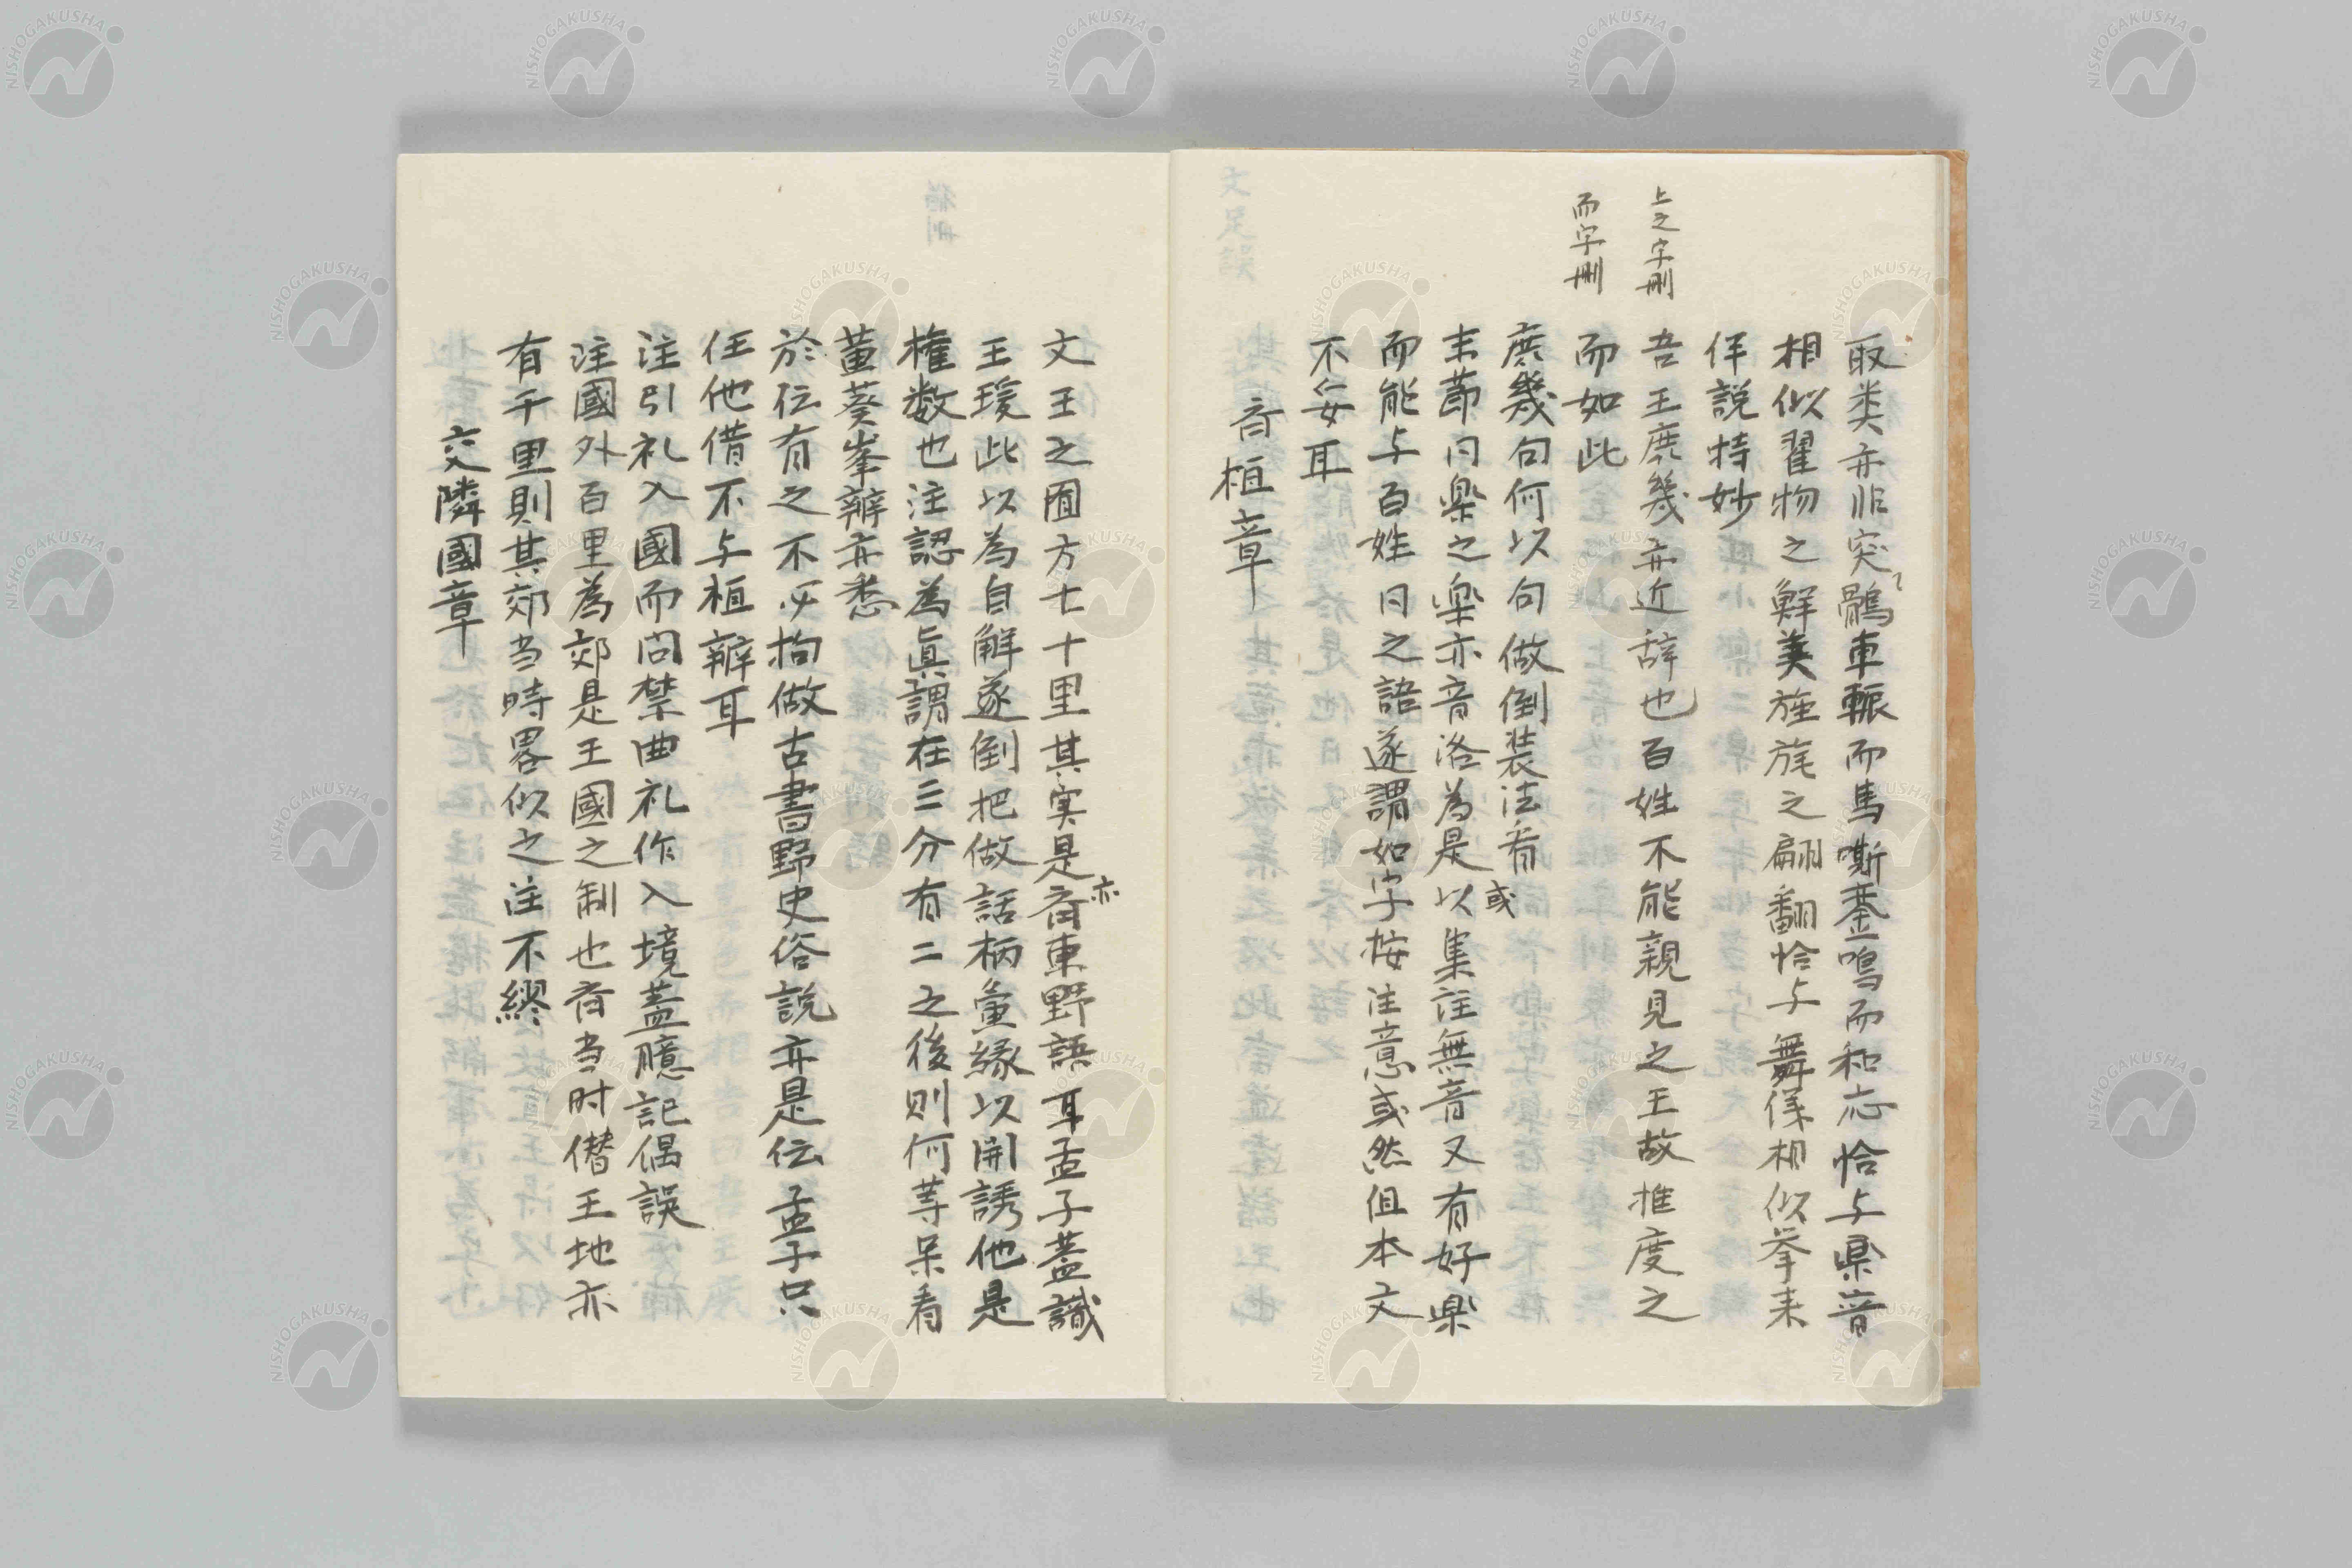 上之字刪
而字刪
取类亦非突鶻車軛而馬嘶銮鳴而和応恰与楽音
相似翟物之鮮美旌旄之翩翻恰与舞佾相似挙来
佯説特妙
吾王庶幾亦近辞也百姓不能親見之王故推度之
而如此
庶幾句何以句做倒装法看
末節曰楽之楽亦音洛為是以或集註無音又有好楽
而能与百姓同之語遂謂如字按注意或然但本文
不妥耳
斉桓章
文王之囿方七十里其実是亦斉東野語耳孟子蓋識
王瑗此以為自解遂倒把做話柄夤縁以開誘他是
権数也注認為眞謂在三分有二之後則何等呆看
董葵峯辯亦悉
於伝有之不必拘做古書野史俗説亦是伝孟子只
任他借不与桓辯耳
注引礼入國而問禁曲礼作入境蓋臆記偶誤
注國外百里為郊是王國之制也斉当时僭王地亦
有千里則其郊当時畧似之注不繆
交隣國章